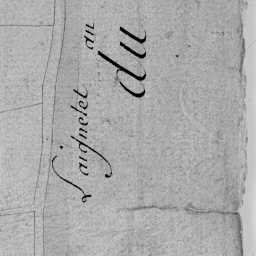 L'aignelet du
du